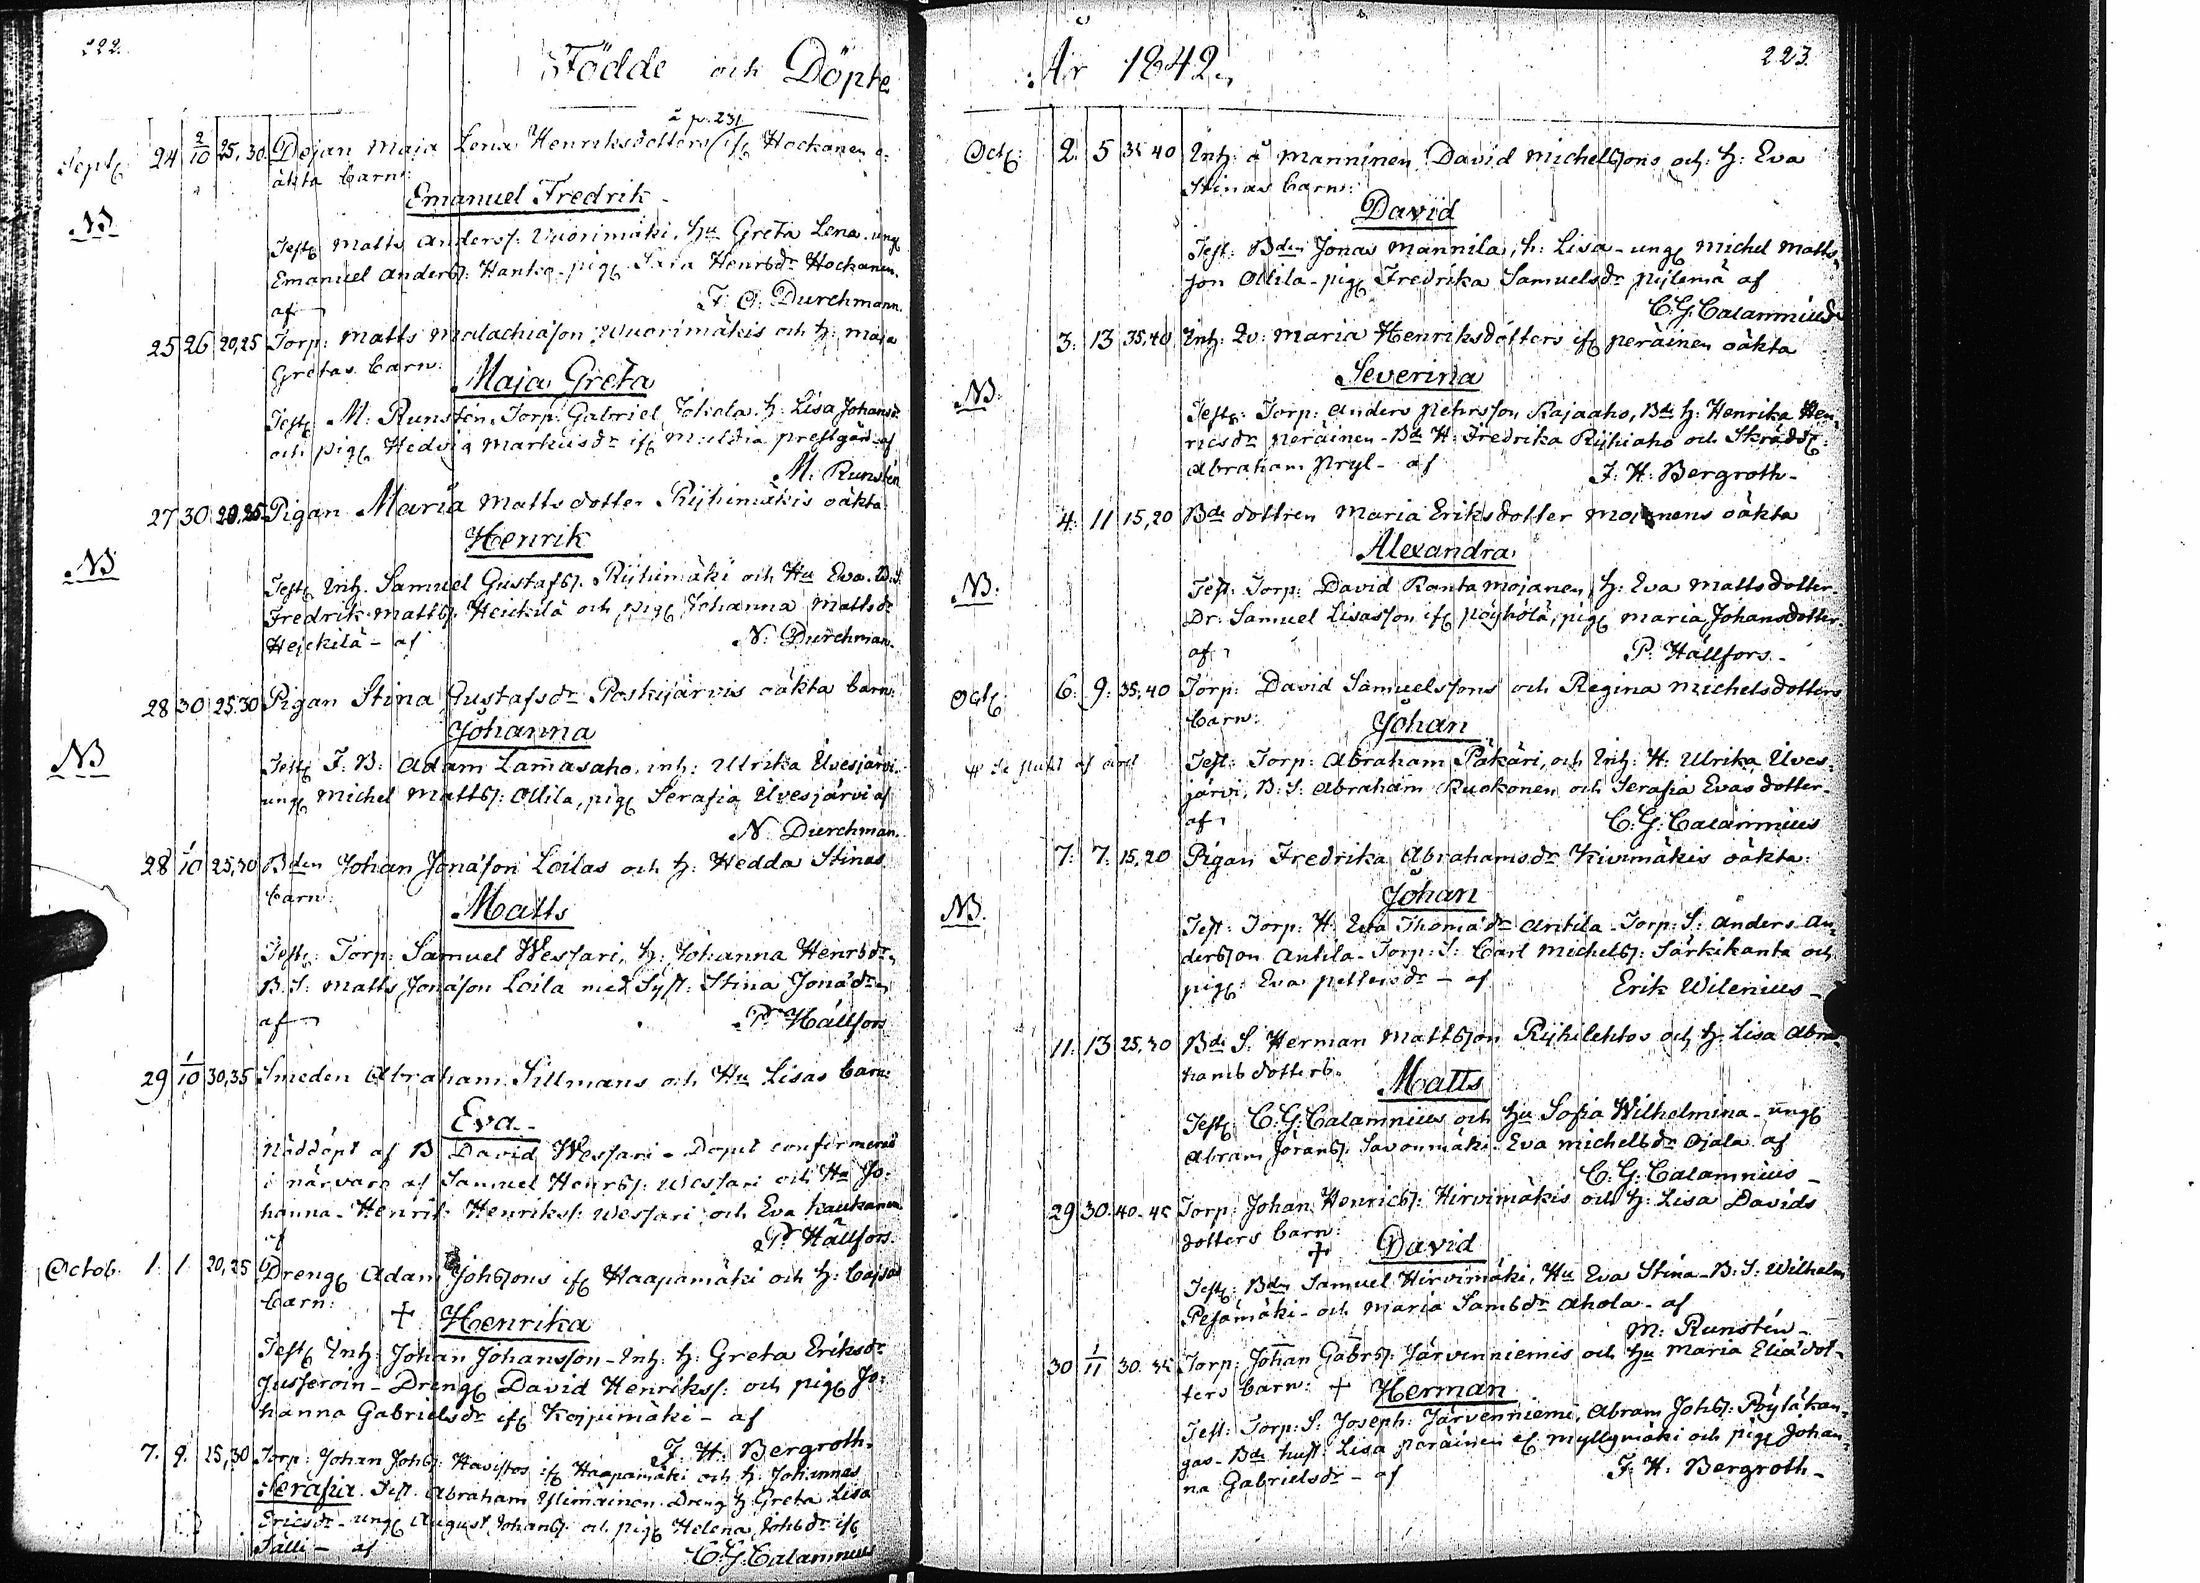 222.
Födde och Döpte
å p. 231
Sept. 24 2/10 25,30. Pejan Maja Lena Henriksdotters if. Hockanen o:
äkta barn:
Emanuel Fredrik
NB
Test. Matts Anders: Vuorimäki, Hu Greta Lena. ung.
Emanuel Anders: Hanka. pig. Sara Henrsdr Hockanen.
af
F. O. Durchman.
25 26 20,25 Torp: Matts Malachiäson Wuorimäkis och h: Maja
Gretas barn:
Maja Greta
Test. M: Runsten, Torp: Gabriel Johola. h: Lisa Johansd.
och pig. Hedvig Markusdr if. Muldia prestgård af
M: Runsten
27 30 20,25 Pigan Maria Matts dotter Ryhimäkis oäkta
Henrik
NB
Test. Inh. Samuel Gustafss. Ryhimäki och Hu Eva.
Fredrik Mattss. Heickilä och pig. Johanna Mattsdr
Hejckilä - af N. Durchman.
28 30 25.30 Pigan Stina Gustafsdr Poskijärvis oäkta barn:
Johanna
NB
Test. F: B: Adam Lamasaho. inh: Ulrika Ulvesjärvi.
ung. Michel Mattss: Ollila, pig. Serafia Ulvesjärvi af
N. Durchman.
28 1/10 25,30 Bden Johan Jonäson Loilas och h: Hedda Stinas
barn:
Matts
Test: Torp: Samuel Wessari, h: Johanna Henrsdr
B. S: Matts Jonäson Loila med Syst: Stina Jonädr
af
P. Hällfors
29 1/10 30,35 Smeden Abraham Sillmans och Hu Lisas barn:
Eva.
Nöddöpt af B David Wessari - Dopet confirmerad
i närvaro af Samuel Henrss: Wessari och Hu Jo:
hanna - Henrik Henrikss: Wessari och Eva Kaukanen
af P. Hällfors.
Octob. 1. 1 20,25 Dreng. Adam Johssons if. Haapamäki och h: Cajsas
barn: † Henrika
Test. Inh: Johan Johansson - Inh: h: Greta Eriksdr
Jusseroin - Dreng. David Henrikss: och pig. Jo:
hanna Gabrielsdr if. Kojpimäki - af
F. H. Bergroth.
7. 9. 25,30 Torp: Johan Johss: Havistos if. Haapamäki och h: Johannas
Serafia. Test. Abraham Ylimäinen. Dreng h Greta Lisa
Ericsdr - ung. August Johanss: och pig. Helena Johsdr if.
Sälli - af C. G. Calamnius
År 1842.
223.
Oct. 2. 5 35 40 Inh: å Manninen David Michelssons och h: Eva
Stinas barn:
David
Test: Bden Jonas Mannila, h: Lisa - ung. Michel Matts,
son Ollila - pig. Fredrika Samuelsdr Pylemä af
C. G. Calamnius
3: 13 35,40 Inh: Qv: Maria Henriksdotters if. Peräinen oäkta
Severina
NB.
Test: Torp: Anders Pehrsson Kajaaho, Bde h: Henrika Hen,
ricsdr Peräinen - Bde H: Fredrika Ryhiaho och Skrädd.
Abraham Pryl - af F. H. Bergroth -
4: 11 15,20 Bde dottren Maria Eriksdotter Mojanens oäkta
Alexandra
NB.
Test. Torp: David Ranta Mojanen, h: Eva Mattsdotter.
Dr. Samuel Lisasson if. Pöyhölä, pig. Maria Johansdotter.
af
P. Hällfors.
Oct. 6: 9: 35,40 Torp: David Samuelssons och Regina Michelsdotters
barn: Johan
Test: Torp: Abraham Päkäri, och Inh: H: Ulrika Ulves:
järvi, B: S: Abraham Ruokonen och Serafia Evasdotter.
af
C. G: Calamnius
7: 7: 15,20 Pigan Fredrika Abrahamsdr Kivimäkis oäkta:
Johan
NB.
Test: Torp: H: Eva Thomädr Antila - Torp: S: Anders An,
dersson Antila - Torp: S: Carl Michelss: Särkikanta och
pig: Eva Pettersdr - af Erik Wilenius -
11: 13 25,30 Bde S. Herman Mattsson Ryhilehtos och h: Lisa Abra,
hamsdotters
Matts
Test. C. G: Calamnius och Hu Sofia Wilhelmina - ung.
Abram Joranss: Savonmäki. Eva Michelsdr Ojala. af
C. G: Calamnius -
29 30. 40-45 Torp: Johan Henricss: Hirvimäkis och h: Lisa Davids
dotters barn: † David
Test: Bden Samuel Hirvimäki, Hu Eva Stina - B: S: Wilhelm
Pesämäki - och Maria Samsdr Ahola - af
M: Runsten -
30 1/11 30. 35 Torp: Johan Gabrss: Järvenniemis och Hu Maria Eliädot,
ters barn: † Herman
Test: Torp: S: Joseph: Järvenniemi, Abram Johss: Pöyläkan,
gas - Bde hust: Lisa Peräinen if. Myllymäki och pig. Johan,
na Gabrielsdr - af F. H. Bergroth -